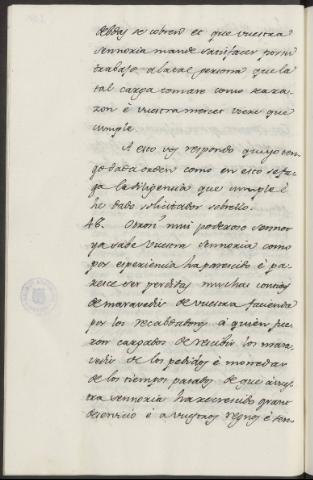 debdas se cobren et que vuestra
sennoria mande satisfacer por su
trabajo a la tal persona que la
tal carga tomare como sea ra-
zon é vuestra merced viere que
cumple.
A esto vos respondo que yo ten-
go dada orden como en esto se fa-
ga la diligencia que cumple é
he dado solicitador sobrello.
48. Otrosi mui poderoso sennor
ya sabe vuestra sennoria como
por esperiencia ha parescido é pa-
resce ser perdidas muchas contias
de maravedis de vuestra facienda
por los recabdadores á quien fue-
ron cargados de recebir los mara-
vedis de los pedidos é monedas
de los tiempos pasados de que á vues-
tra sennoria ha recrecido grant
deservicio é a vuestros regnos é sen-